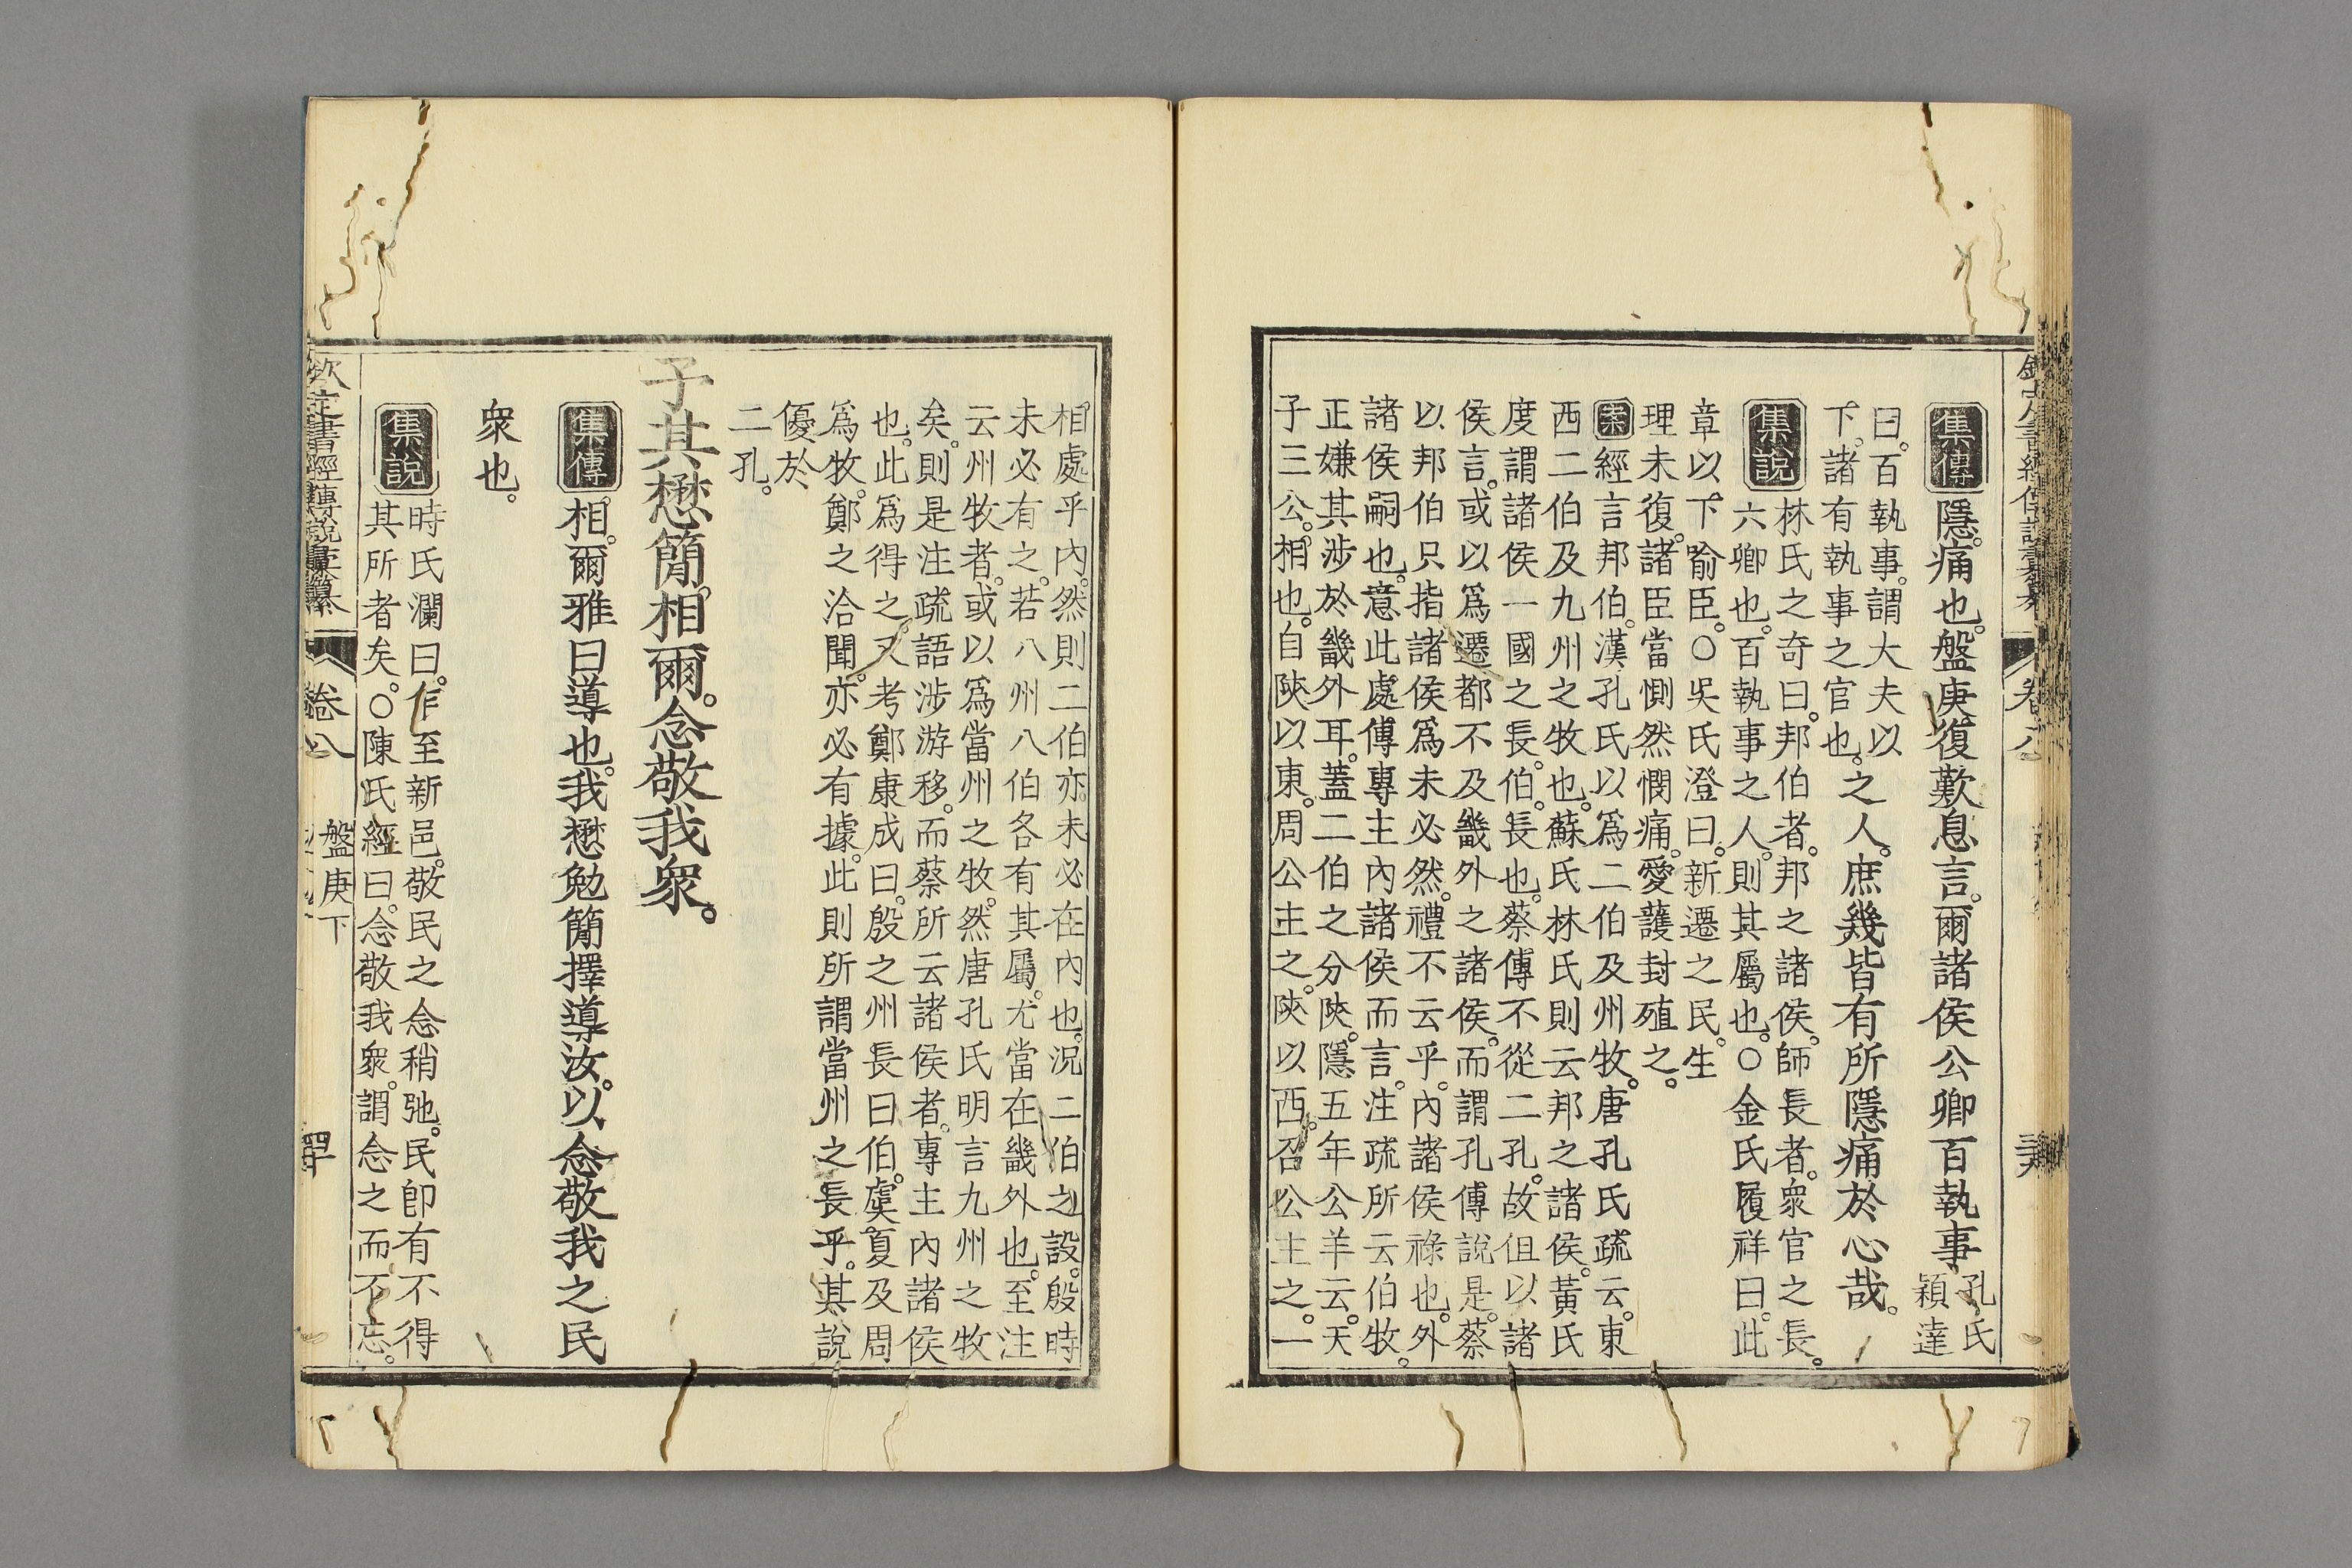 集傳 隱。痛也。盤庚復歎息言。爾諸侯公卿百執事 孔氏穎達
曰。百執事。謂大夫以下。諸有執事之官也。之人。庶幾皆有所隱痛於心哉。
集說 林氏之奇曰。邦伯者。邦之諸侯。師長者。衆官之長。
六卿也。百執事之人。則其屬也。○金氏履祥曰。此
章以下。喻臣。○吳氏澄曰。新遷之民。生
理未復。諸臣當惻然憫痛。愛護封殖之。
案 經言邦伯。漢孔氏以爲二伯及州牧。唐孔氏疏云。東
西二伯及九州之牧也。蘇氏林氏則云邦之諸侯。黃氏
度謂諸侯一國之長。伯。長也。蔡傳不從二孔。故但以諸
侯言。或以爲遷都不及畿外之諸侯。而謂孔傳說是。蔡
以邦伯只指諸侯爲未必然。禮不云乎。內諸侯祿也。外
諸侯嗣也。意此處傳專主內諸侯而言。注疏所云伯牧。
正嫌其涉於畿外耳。蓋二伯之分陝。隱五年公羊云。天
子三公。相也。自陝以東。周公主之。陝以西。召公主之。一
相。處乎內。然則二伯亦未必在內也。況二伯之設。殷時
未必有之。若八州八伯各有其屬。尤當在畿外也。至注
云州牧者。或以爲當州之牧。然唐孔氏明言九州之牧
矣。則是注疏語涉游移。而蔡所云諸侯者。專主內諸侯
也。此爲得之。又考鄭康成曰。殷之州長曰伯。虞夏及周
爲牧。鄭之洽聞。亦必有據。此則所謂當州之長乎。其說
優於
二孔。
予其懋簡。相爾。念敬我衆。
集傳 相。爾雅曰導也。我懋勉簡擇導汝。以念敬我之民
衆也。
集說 時氏瀾曰。乍至新邑。敬民之念稍弛。民卽有不得
其所者矣。○陳氏經曰。念敬我衆。謂念之而不忘。
欽定書經傳說彙纂 卷八 盤庚下